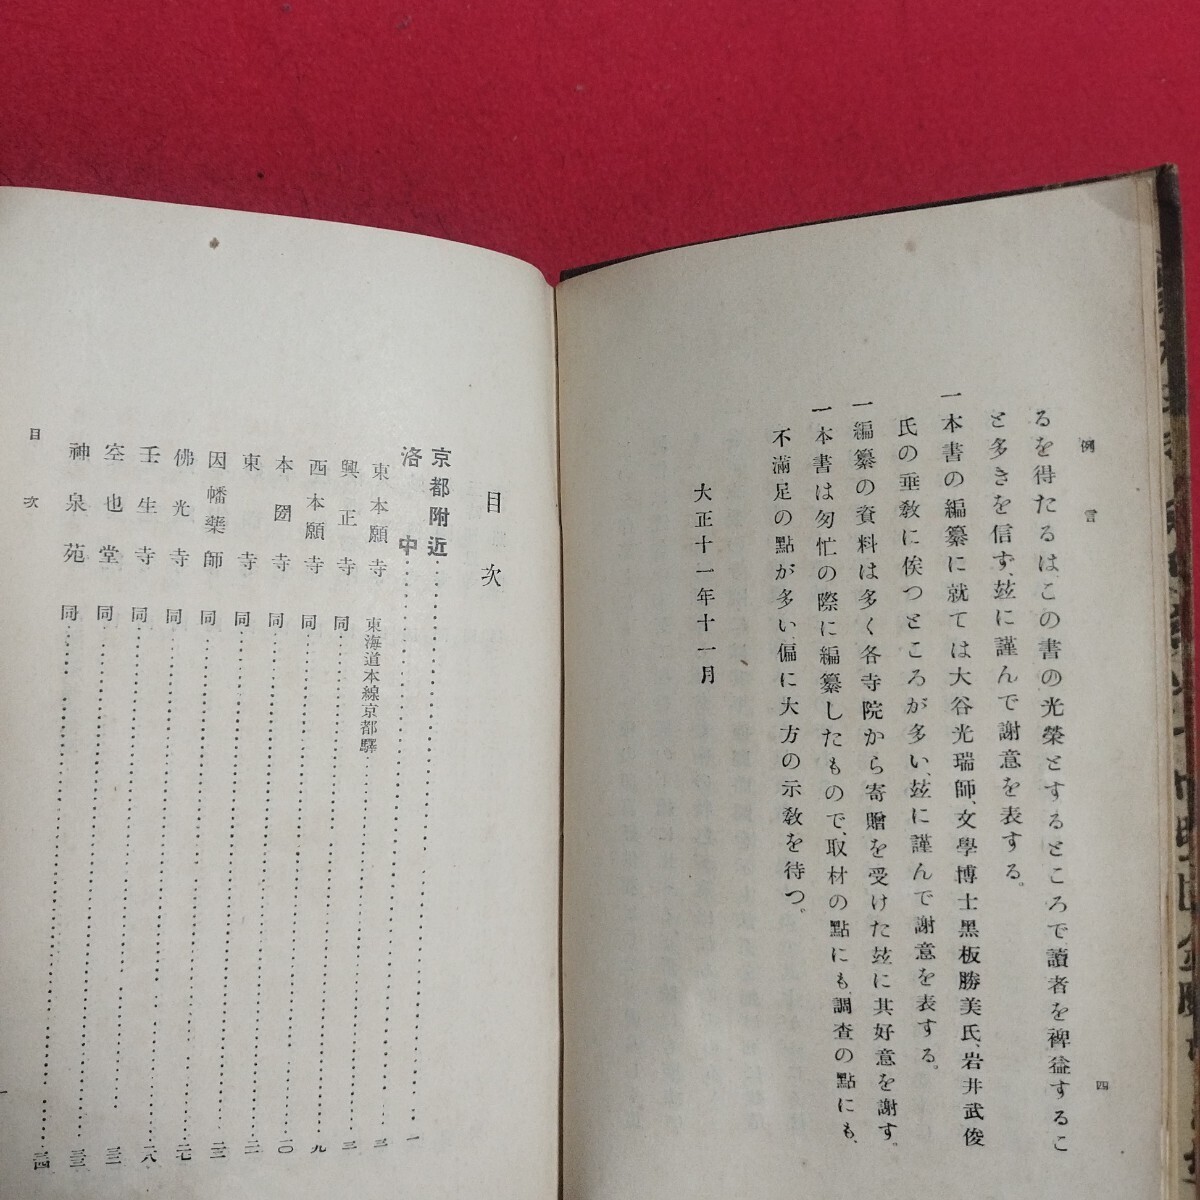 例言
四
るを得たるは、この書の光榮とするところで、讀者を裨益するこ
と多きを信ず、玆に謹んで謝意を表する。
一本書の編纂に就ては大谷光瑞師、文學博士黑板勝美氏、岩井武俊
氏の垂敎に俟つところが多い、玆に謹んで謝意を表する。
一編纂の資料は多く各寺院から寄贈を受けた玆に其好意を謝す。
一本書は匆忙の際に編纂したもので、取材の點にも、調査の點にも、
不滿足の點が多い、偏に大方の示敎を待つ。
大正十一年十一月
目次
京都附近……一
洛中……
東本願寺 東海道本線京都驛……
興正寺 同……
西本願寺 同……九
本圀寺 同……一〇
東寺 同……
因幡藥師 同……
佛光寺 同……
壬生寺 同……
空也堂 同……
神泉苑 同……
目次